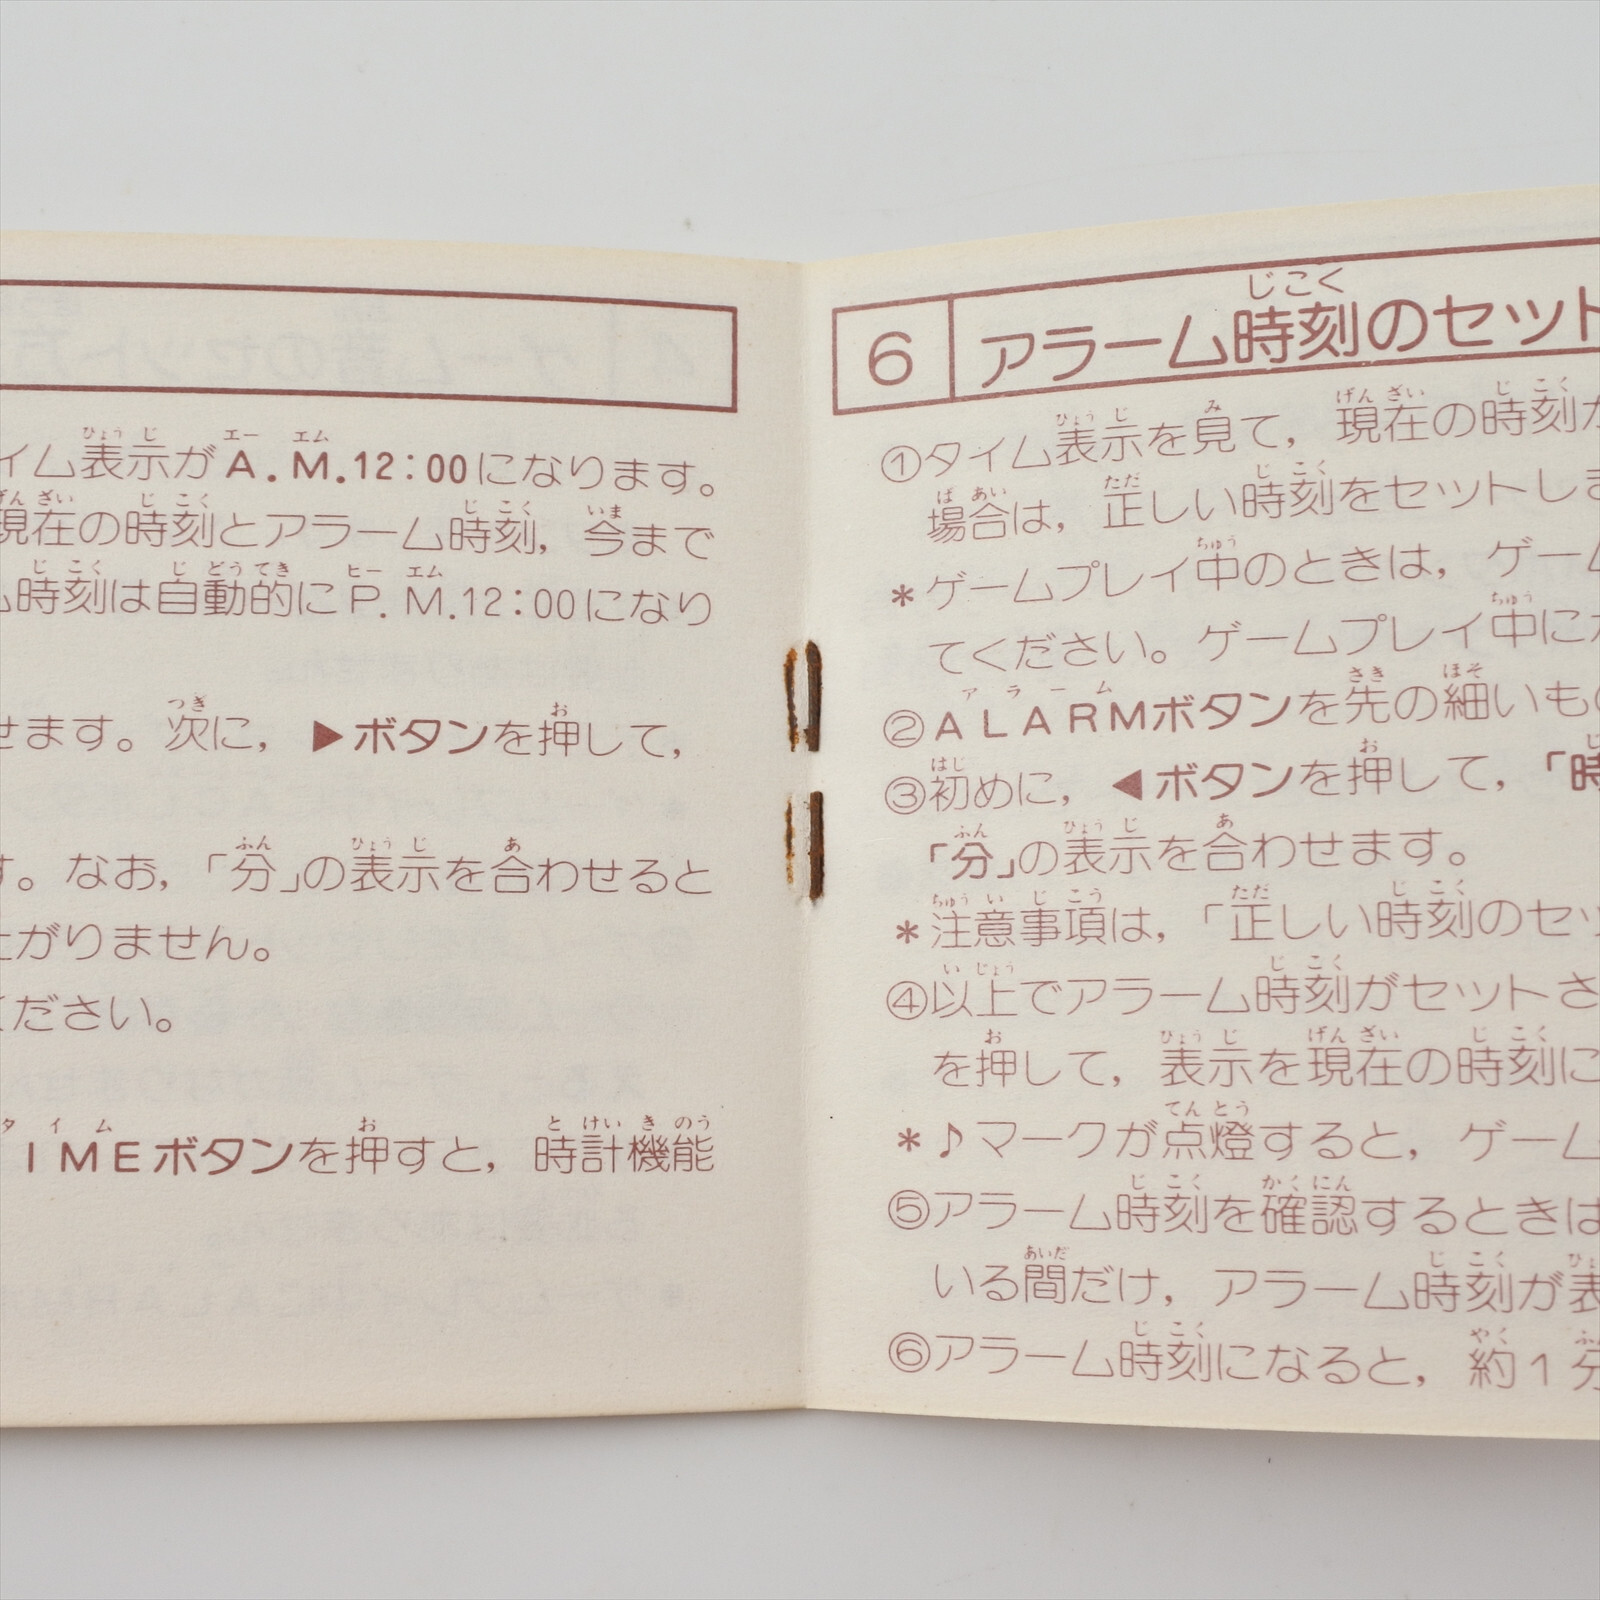 イム表示がA.M.12:00になります。
現在の時刻とアラーム時刻，今まで
時刻は自動的にP.M.12:00になり
せます。次に，▶ボタンを押して，
す。なお，「分」の表示を合わせると
がりません。
ください。
IMEボタンを押すと，時計機能
6 アラーム時刻のセット
①タイム表示を見て，現在の時刻が
場合は，正しい時刻をセットしま
＊ゲームプレイ中のときは，ゲーム
てください。ゲームプレイ中に
②ALARMボタンを先の細いもの
③初めに，◀ボタンを押して，「時
「分」の表示を合わせます。
＊注意事項は，「正しい時刻のセッ
④以上でアラーム時刻がセットさ
を押して，表示を現在の時刻に
＊♪マークが点燈すると，ゲーム
⑤アラーム時刻を確認するときは
いる間だけ，アラーム時刻が表
⑥アラーム時刻になると，約1分